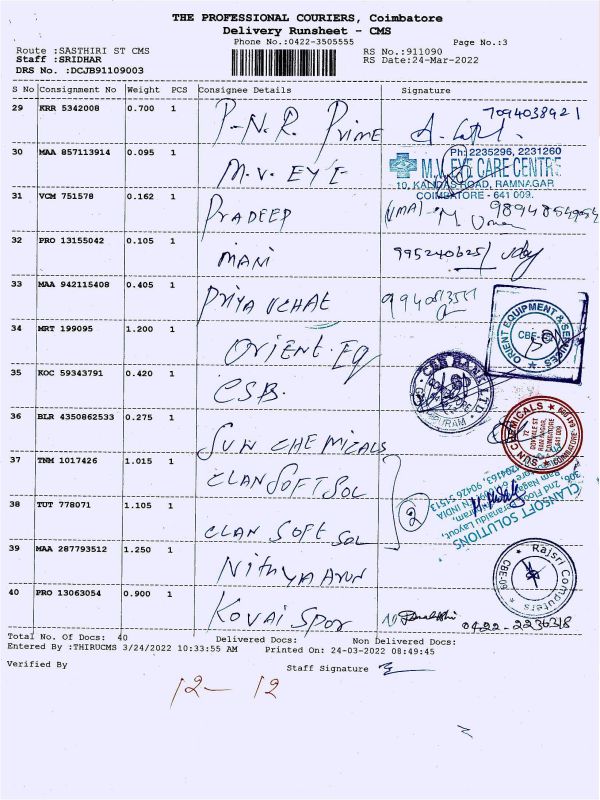 THE PROFESSIONAL COURIERS, Coimbatore
Delivery Runsheet - CMS
Phone No.:0422-3505555 Page No.:3
Route :SASTHIRI ST CMS RS No.:911090
Staff :SRIDHAR RS Date:24-Mar-2022
DRS No. :DCJB91109003
S No Consignment No Weight PCS Consignee Details Signature
29 KRR 5342008 0.700 1 P-N.R. Prime 7094038921
30 MAA 857113914 0.095 1 M.V. EYE
Ph: 2235296, 2231260
M.V. EYE CARE CENTRE
10, KALIDAS ROAD, RAMNAGAR
COIMBATORE - 641 009.
31 VCM 751578 0.162 1 PRADEEP (UMA) M Uma
32 PRO 13155042 0.105 1 MANI 9952406251 Uday
33 MAA 942115408 0.405 1 PRIYA
34 MRT 199095 1.200 1 ORIENT. EQ
ORIENT EQUIPMENT & SERVICES
CBE-
35 KOC 59343791 0.420 1 CSB.
CSB BANK LTD.
PURAM
36 BLR 4350862533 0.275 1 SUN CHEMICALS
SUN CHEMICALS
COIMBATORE
37 TNM 1017426 1.015 1 CLANSOFT SOL
38 TUT 778071 1.105 1 CLAN SOFT SOL 2
CLANSOFT SOLUTIONS
39 MAA 287793512 1.250 1 Nithya Arun
Rajsri Computers
CBE-09
40 PRO 13063054 0.900 1 KOVAI SPOR 0422-2236318
Total No. Of Docs: 40 Delivered Docs: Non Delivered Docs:
Entered By :THIRUCMS 3/24/2022 10:33:55 AM Printed On: 24-03-2022 08:49:45
Verified By Staff Signature
12 - 12